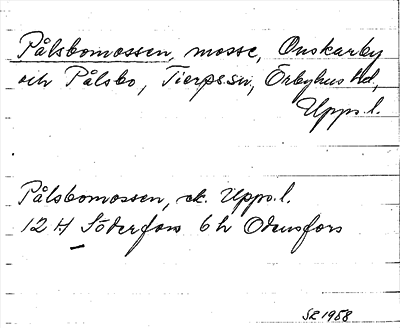 Pålsbomossen, mosse, Onskarby
och Pålsbo, Tierps sn, Örbyhus hd,
Upps. l.
Pålsbomossen, ek. Upps. l.
12 H Söderfors 6 h Odensfors
SR 1958